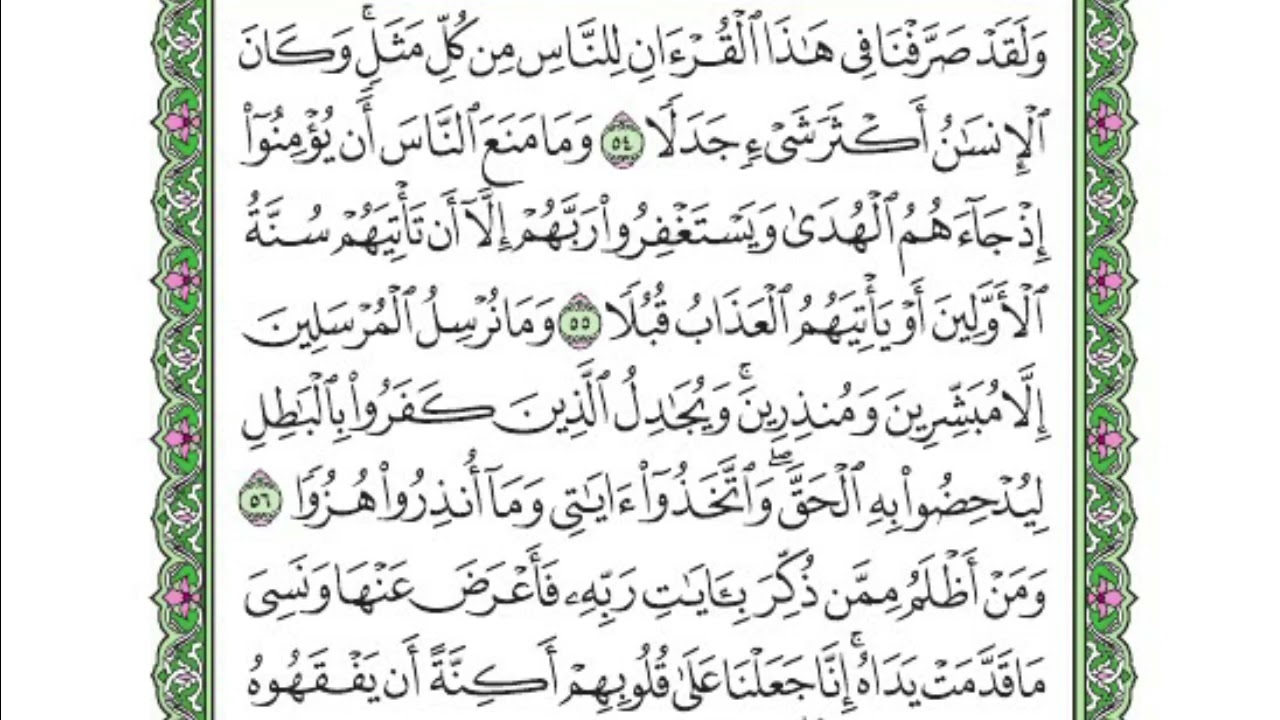 وَلَقَدْ صَرَّفْنَا فِى هَـٰذَا ٱلْقُرْءَانِ لِلنَّاسِ مِن كُلِّ مَثَلٍۚ وَكَانَ
ٱلْإِنسَـٰنُ أَكْثَرَ شَىْءٍ جَدَلًا ٥٤ وَمَا مَنَعَ ٱلنَّاسَ أَن يُؤْمِنُوٓا۟
إِذْ جَآءَهُمُ ٱلْهُدَىٰ وَيَسْتَغْفِرُوا۟ رَبَّهُمْ إِلَّآ أَن تَأْتِيَهُمْ سُنَّةُ
ٱلْأَوَّلِينَ أَوْ يَأْتِيَهُمُ ٱلْعَذَابُ قُبُلًا ٥٥ وَمَا نُرْسِلُ ٱلْمُرْسَلِينَ
إِلَّا مُبَشِّرِينَ وَمُنذِرِينَۚ وَيُجَـٰدِلُ ٱلَّذِينَ كَفَرُوا۟ بِٱلْبَـٰطِلِ
لِيُدْحِضُوا۟ بِهِ ٱلْحَقَّۖ وَٱتَّخَذُوٓا۟ ءَايَـٰتِى وَمَآ أُنذِرُوا۟ هُزُوًا ٥٦
وَمَنْ أَظْلَمُ مِمَّن ذُكِّرَ بِـَٔايَـٰتِ رَبِّهِۦ فَأَعْرَضَ عَنْهَا وَنَسِىَ
مَا قَدَّمَتْ يَدَاهُۚ إِنَّا جَعَلْنَا عَلَىٰ قُلُوبِهِمْ أَكِنَّةً أَن يَفْقَهُوهُ